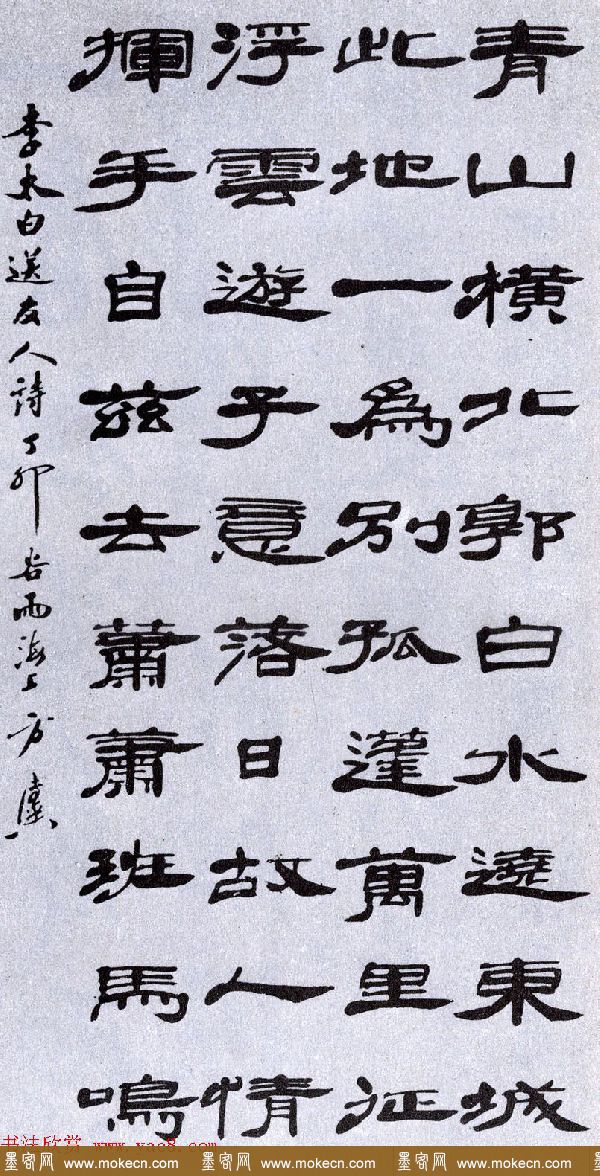 青山橫北郭白水遶東城
此地一為別孤蓬萬里征
浮雲遊子意落日故人情
揮手自茲去蕭蕭班馬鳴
李太白送友人詩丁卯谷雨海上方
书法欣赏 www.yac8.com
墨客网 www.mokecn.com 墨客网 www.mokecn.com 墨客网 www.mokecn.com